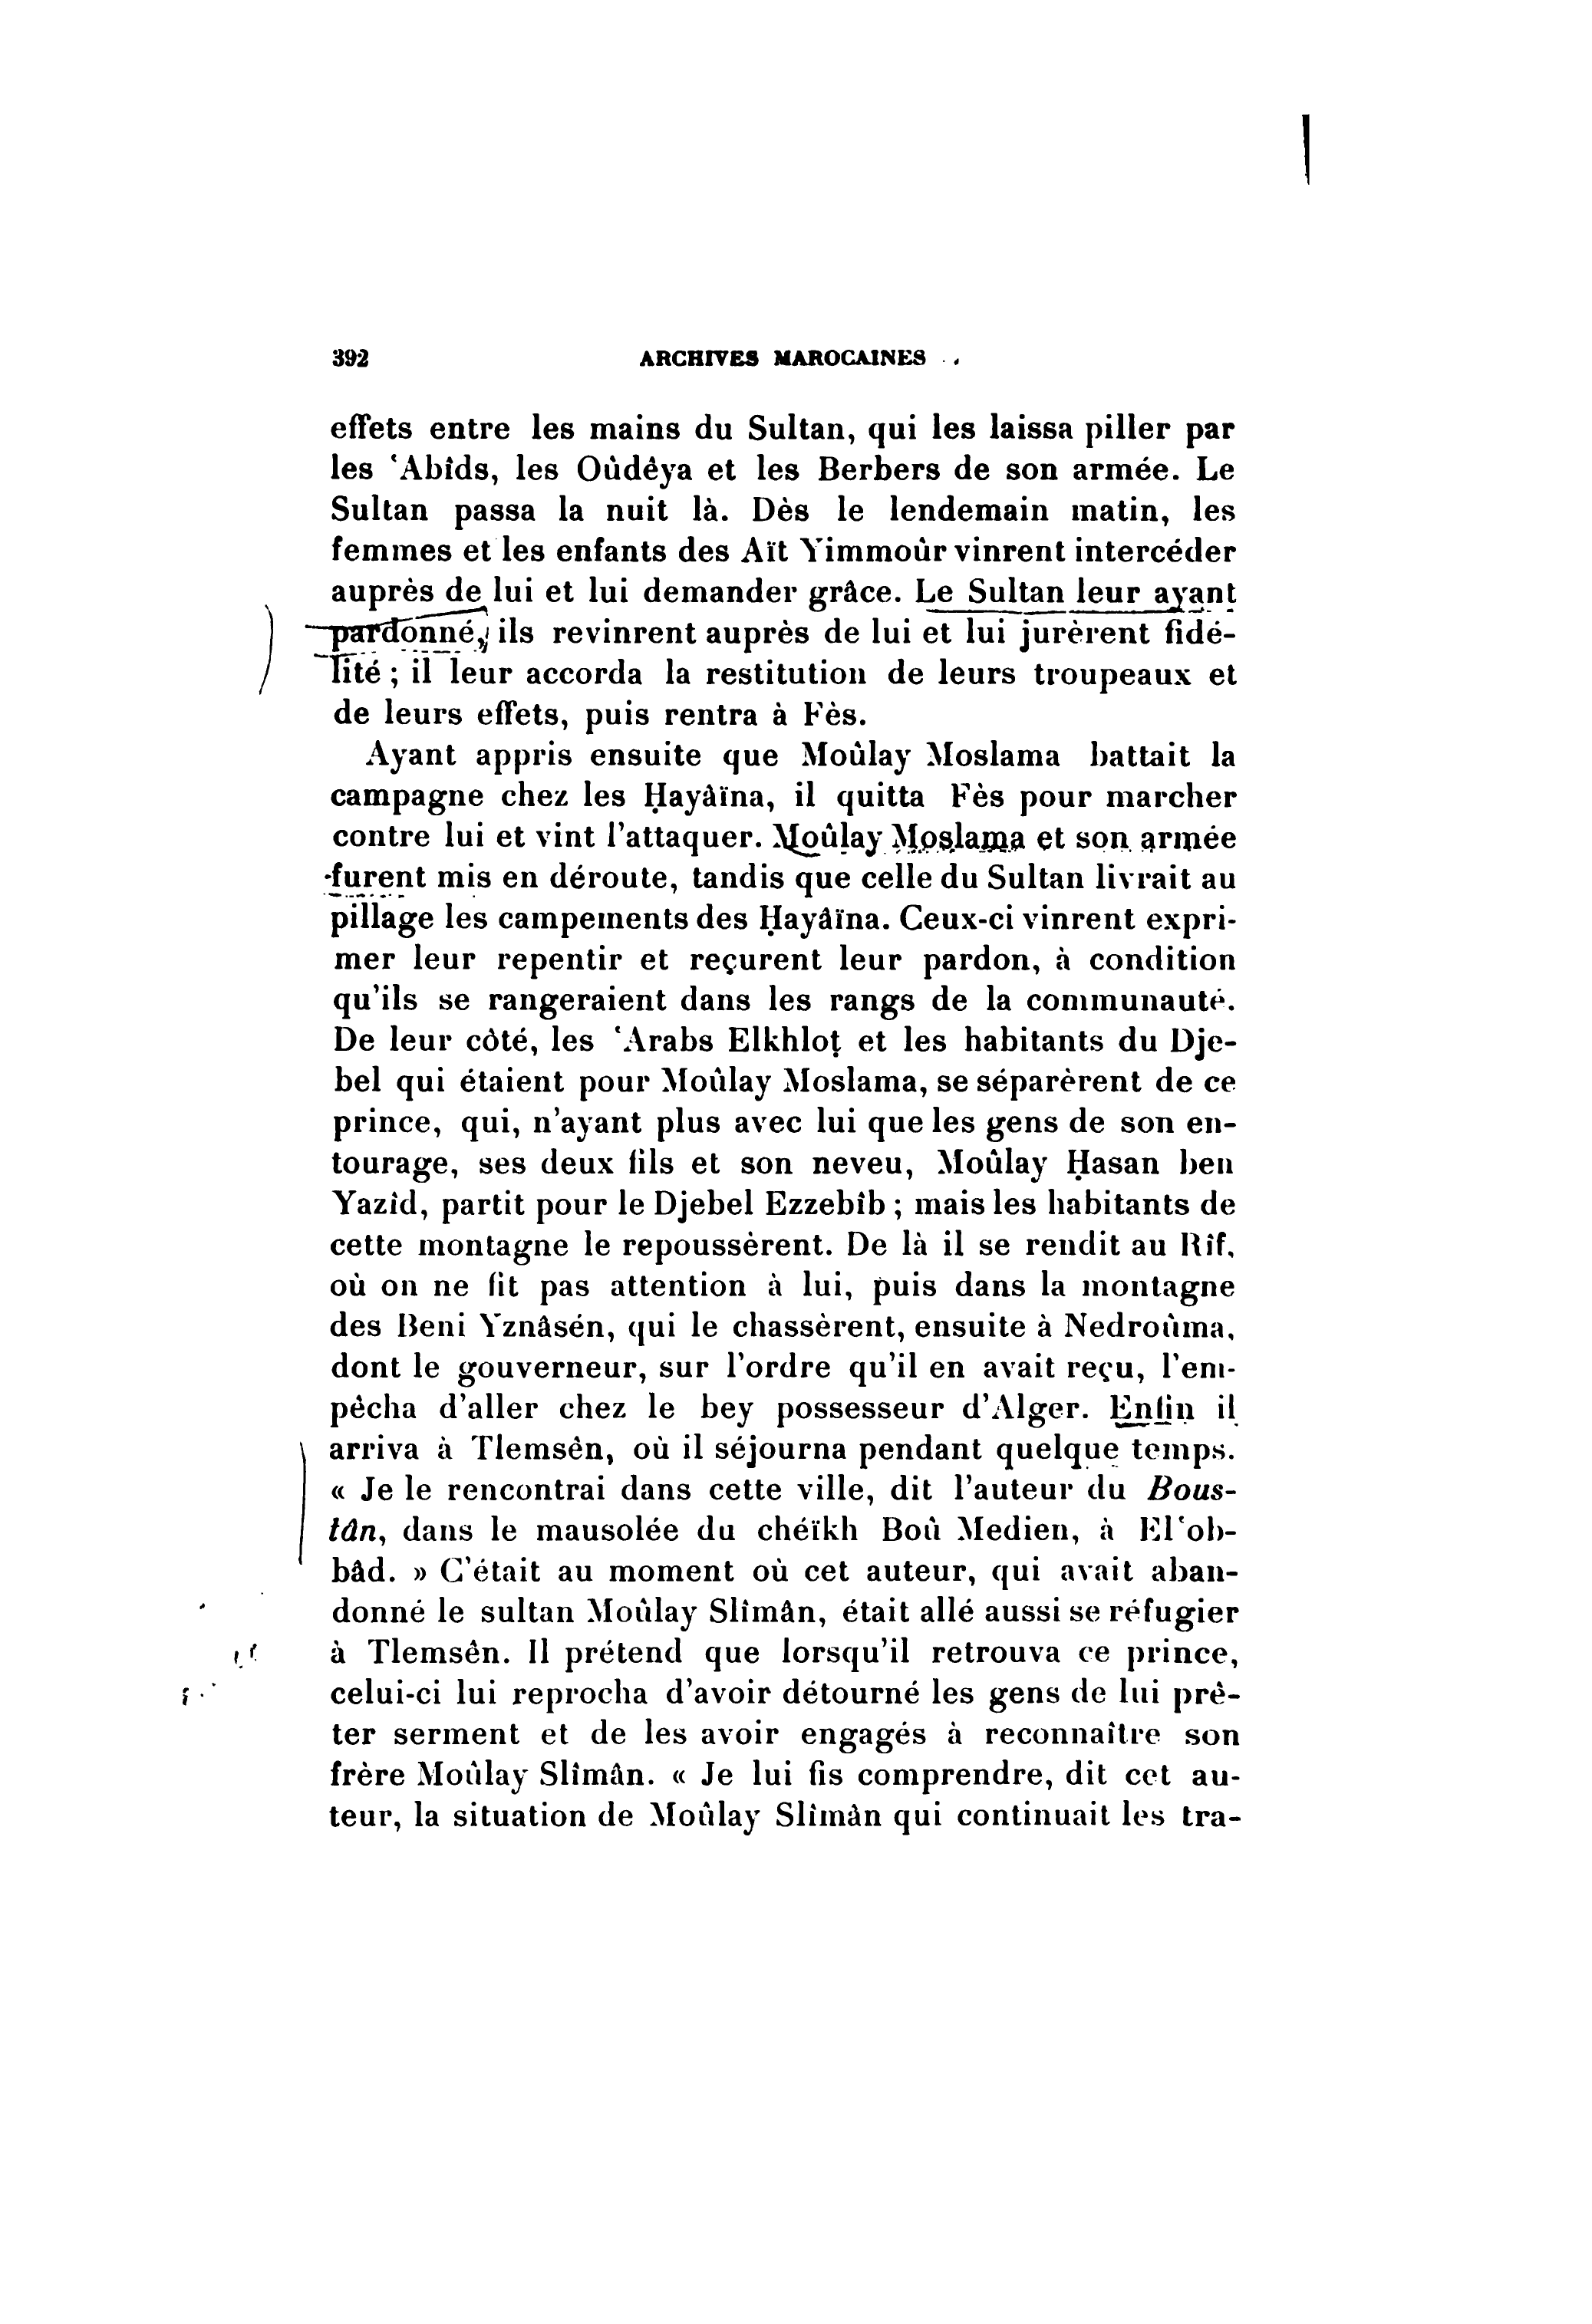 392 ARCHIVES MAROCAINES
effets entre les mains du Sultan, qui les laissa piller par
les ‘Abîds, les Oûdêya et les Berbers de son armée. Le
Sultan passa la nuit là. Dès le lendemain matin, les
femmes et les enfants des Aït Yimmoûr vinrent intercéder
auprès de lui et lui demander grâce. Le Sultan leur ayant
pardonné, ils revinrent auprès de lui et lui jurèrent fidé-
lité ; il leur accorda la restitution de leurs troupeaux et
de leurs effets, puis rentra à Fès.
Ayant appris ensuite que Moûlay Moslama battait la
campagne chez les Ḥayâïna, il quitta Fès pour marcher
contre lui et vint l'attaquer. Moûlay Moslama et son armée
furent mis en déroute, tandis que celle du Sultan livrait au
pillage les campements des Ḥayâïna. Ceux-ci vinrent expri-
mer leur repentir et reçurent leur pardon, à condition
qu'ils se rangeraient dans les rangs de la communauté.
De leur côté, les ‘Arabs Elkhloṭ et les habitants du Dje-
bel qui étaient pour Moûlay Moslama, se séparèrent de ce
prince, qui, n'ayant plus avec lui que les gens de son en-
tourage, ses deux fils et son neveu, Moûlay Ḥasan ben
Yazîd, partit pour le Djebel Ezzebîb ; mais les habitants de
cette montagne le repoussèrent. De là il se rendit au Rîf,
où on ne fit pas attention à lui, puis dans la montagne
des Beni Yznâsén, qui le chassèrent, ensuite à Nedroûma,
dont le gouverneur, sur l'ordre qu'il en avait reçu, l'em-
pêcha d'aller chez le bey possesseur d'Alger. Enfin il
arriva à Tlemsên, où il séjourna pendant quelque temps.
« Je le rencontrai dans cette ville, dit l'auteur du Bous-
tân, dans le mausolée du chéïkh Boû Medien, à El‘ob-
bâd. » C'était au moment où cet auteur, qui avait aban-
donné le sultan Moûlay Slîmân, était allé aussi se réfugier
à Tlemsên. Il prétend que lorsqu'il retrouva ce prince,
celui-ci lui reprocha d'avoir détourné les gens de lui prê-
ter serment et de les avoir engagés à reconnaître son
frère Moûlay Slîmân. « Je lui fis comprendre, dit cet au-
teur, la situation de Moûlay Slîmân qui continuait les tra-